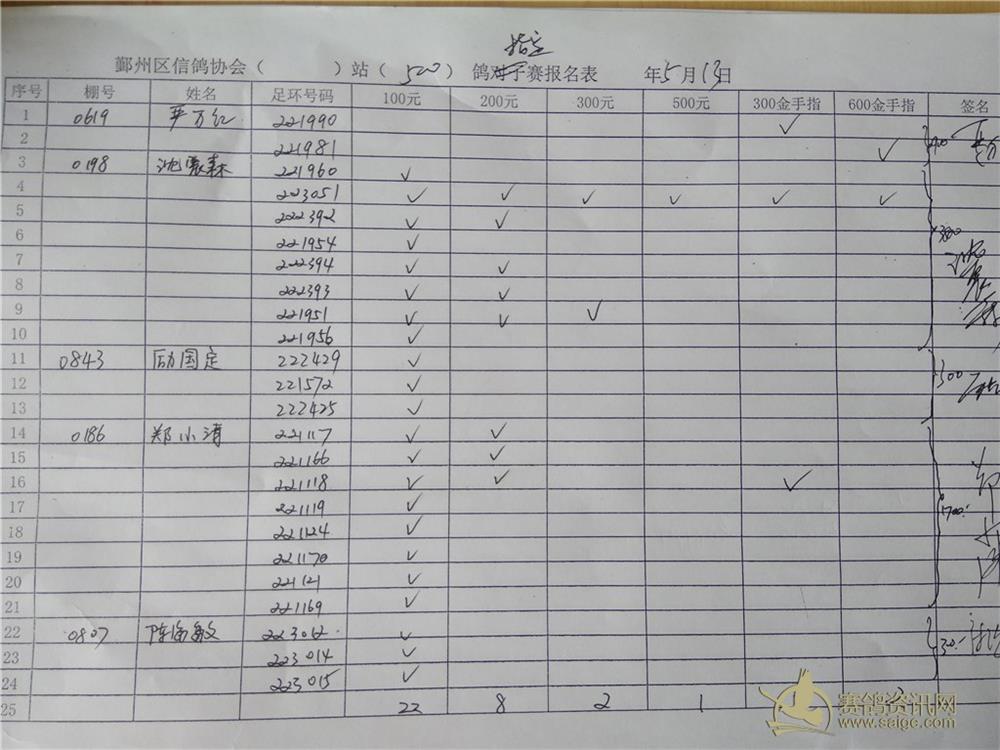 指定
鄞州区信鸽协会（ ）站（ 500 ）鸽对子赛报名表 年5月13日
序号 棚号 姓名 足环号码 100元 200元 300元 500元 300金手指 600金手指 签名
1 0619 严万红 221990 ✓
2 221981 ✓
3 0198 沈 森 221960 ✓
4 223051 ✓ ✓ ✓ ✓ ✓ ✓
5 222392 ✓ ✓
6 221954 ✓
7 222394 ✓ ✓
8 222393 ✓ ✓
9 221951 ✓ ✓ ✓
10 221956 ✓
11 0843 励国定 222429 ✓
12 221572 ✓
13 222425 ✓
14 0186 郑小清 221117 ✓ ✓
15 221166 ✓ ✓
16 221118 ✓ ✓ ✓
17 221119 ✓
18 221124 ✓
19 221170 ✓
20 221121 ✓
21 221169 ✓
22 0807 陈 敏 223012 ✓
23 223014 ✓
24 223015 ✓
25 22 8 2 1
300
1700
赛鸽资讯网
www.saigc.com